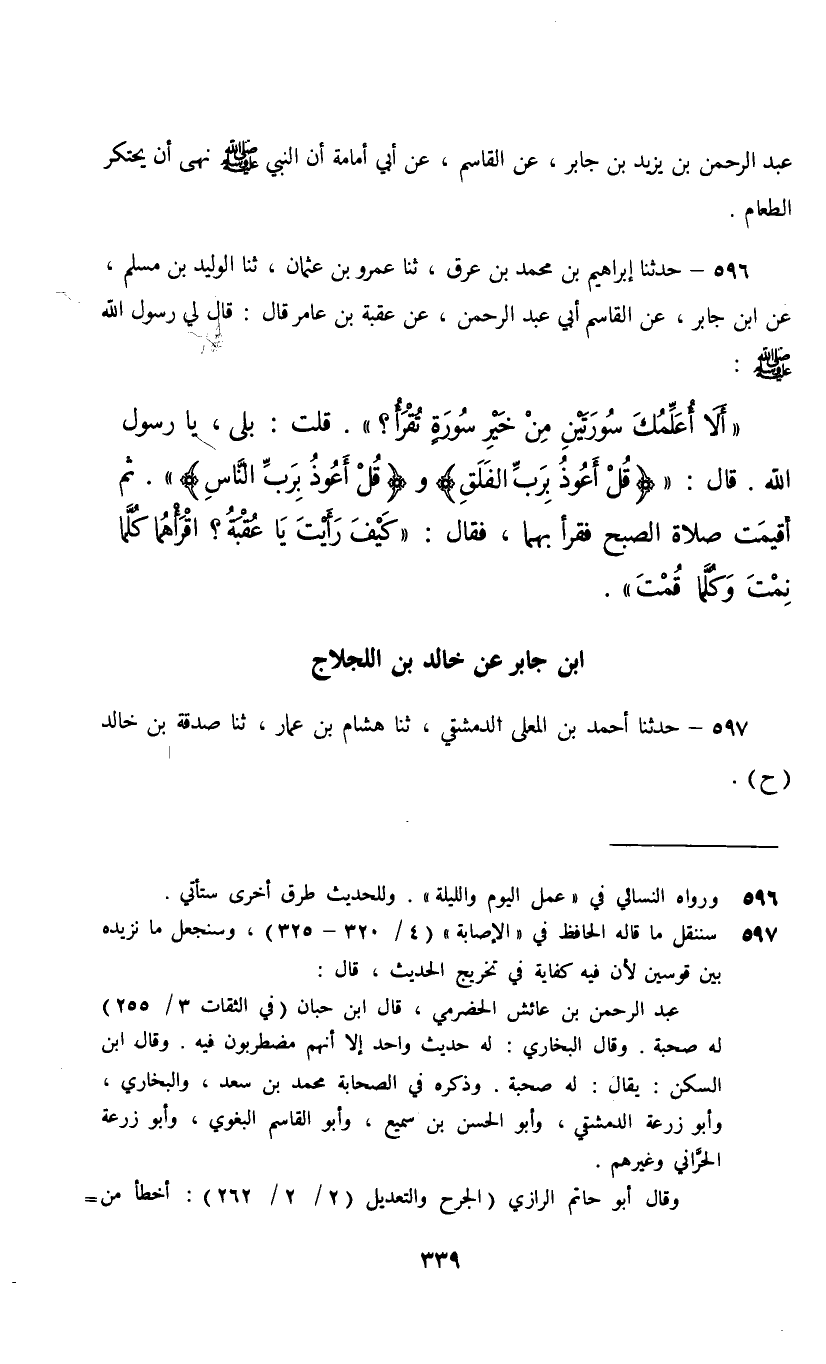 عبد الرحمن بن يزيد بن جابر ، عن القاسم ، عن أبي أمامة أن النبي ﷺ نهى أن يحتكر
الطعام .
٥٩٦ – حدثنا إبراهيم بن محمد بن عرق ، ثنا عمرو بن عثمان ، ثنا الوليد بن مسلم ،
عن ابن جابر ، عن القاسم أبي عبد الرحمن ، عن عقبة بن عامر قال : قال لي رسول الله
ﷺ :
« أَلَا أُعَلِّمُكَ سُورَتَيْنِ مِنْ خَيْرِ سُورَةٍ تُقْرَأُ؟ » . قلت : بلى ، يا رسول
الله . قال : « ﴿قُلْ أَعُوذُ بِرَبِّ الفَلَقِ﴾ و ﴿قُلْ أَعُوذُ بِرَبِّ النَّاسِ﴾ » . ثم
أقيمَت صلاة الصبح فقرأ بهما ، فقال : «كَيْفَ رَأَيْتَ يَا عُقْبَةُ ؟ اقْرَأْهُمَا كُلَّمَا
نِمْتَ وَكُلَّمَا قُمْتَ» .
ابن جابر عن خالد بن اللجلاج
٥٩٧ – حدثنا أحمد بن المعلى الدمشقي ، ثنا هشام بن عمار ، ثنا صدقة بن خالد
(ح) .
٥٩٦ ورواه النسائي في «عمل اليوم والليلة» . وللحديث طرق أخرى ستأتي .
٥٩٧ سننقل ما قاله الحافظ في «الإصابة» (٤/ ٣٢٠ – ٣٢٥) ، وسنجعل ما نزيده
بين قوسين لأن فيه كفاية في تخريج الحديث ، قال :
عبد الرحمن بن عائش الحضرمي ، قال ابن حبان (في الثقات ٣/ ٢٥٥)
له صحبة . وقال البخاري : له حديث واحد إلا أنهم مضطربون فيه . وقال ابن
السكن : يقال : له صحبة . وذكره في الصحابة محمد بن سعد ، والبخاري ،
وأبو زرعة الدمشقي ، وأبو الحسن بن سميع ، وأبو القاسم البغوي ، وأبو زرعة
الحرَّاني وغيرهم .
وقال أبو حاتم الرازي (الجرح والتعديل (٢/ ٢/ ٢٦٢) : أخطأ من=
٣٣٩